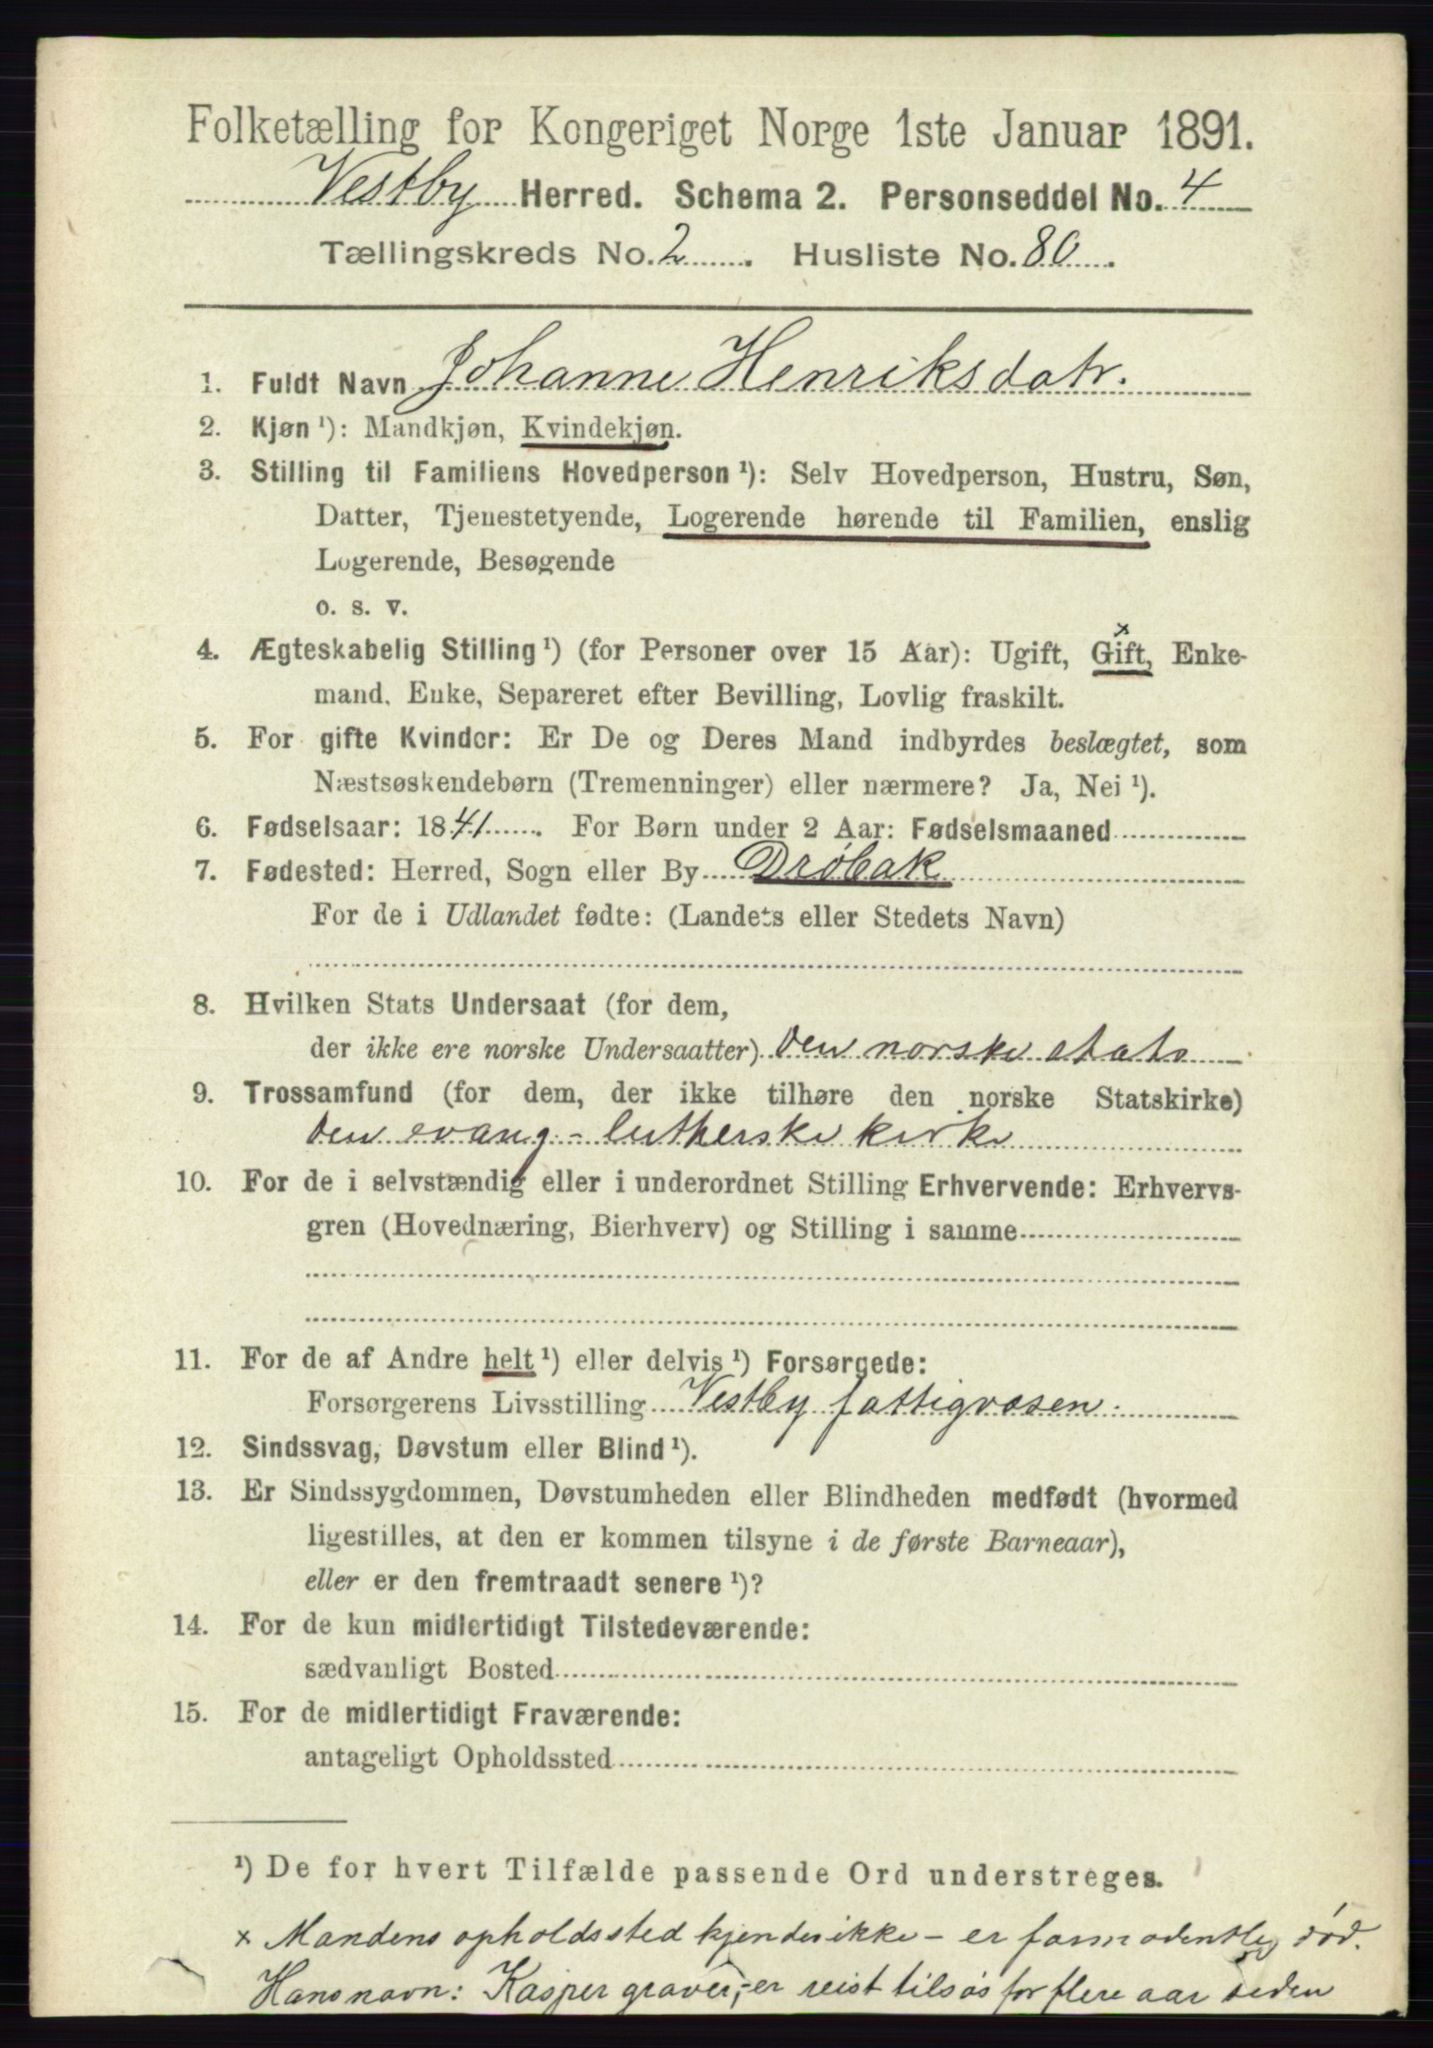 Folketælling for Kongeriget Norge 1ste Januar 1891.
Vestby Herred. Schema 2. Personseddel No. 4
Tællingskreds No. 2. Husliste No. 80.
1. Fuldt Navn Johanne Henriksdatr.
2. Kjøn ¹): Mandkjøn, Kvindekjøn.
3. Stilling til Familiens Hovedperson ¹): Selv Hovedperson, Hustru, Søn,
Datter, Tjenestetyende, Logerende hørende til Familien, enslig
Logerende, Besøgende
o. s. v.
x
4. Ægteskabelig Stilling ¹) (for Personer over 15 Aar): Ugift, Gift, Enke-
mand, Enke, Separeret efter Bevilling, Lovlig fraskilt.
5. For gifte Kvinder: Er De og Deres Mand indbyrdes beslægtet, som
Næstsøskendebørn (Tremenninger) eller nærmere? Ja, Nei ¹).
6. Fødselsaar: 1841. For Børn under 2 Aar: Fødselsmaaned
7. Fødested: Herred, Sogn eller By Drøbak
For de i Udlandet fødte: (Landets eller Stedets Navn)
8. Hvilken Stats Undersaat (for dem,
der ikke ere norske Undersaatter) den norske stats
9. Trossamfund (for dem, der ikke tilhøre den norske Statskirke)
den evang-lutherske kirke
10. For de i selvstændig eller i underordnet Stilling Erhvervende: Erhvervs-
gren (Hovednæring, Bierhverv) og Stilling i samme
11. For de af Andre helt ¹) eller delvis ¹) Forsørgede:
Forsørgerens Livsstilling Vestby fattigvæsen.
12. Sindssvag, Døvstum eller Blind ¹).
13. Er Sindssygdommen, Døvstumheden eller Blindheden medfødt (hvormed
ligestilles, at den er kommen tilsyne i de første Barneaar),
eller er den fremtraadt senere ¹)?
14. For de kun midlertidigt Tilstedeværende:
sædvanligt Bosted
15. For de midlertidigt Fraværende:
antageligt Opholdssted
¹) De for hvert Tilfælde passende Ord understreges.
x Mandens opholdssted kjendes ikke - er formodentlig død.
Hans navn: Kasper graver, - er reist tilsøs for flere aar siden